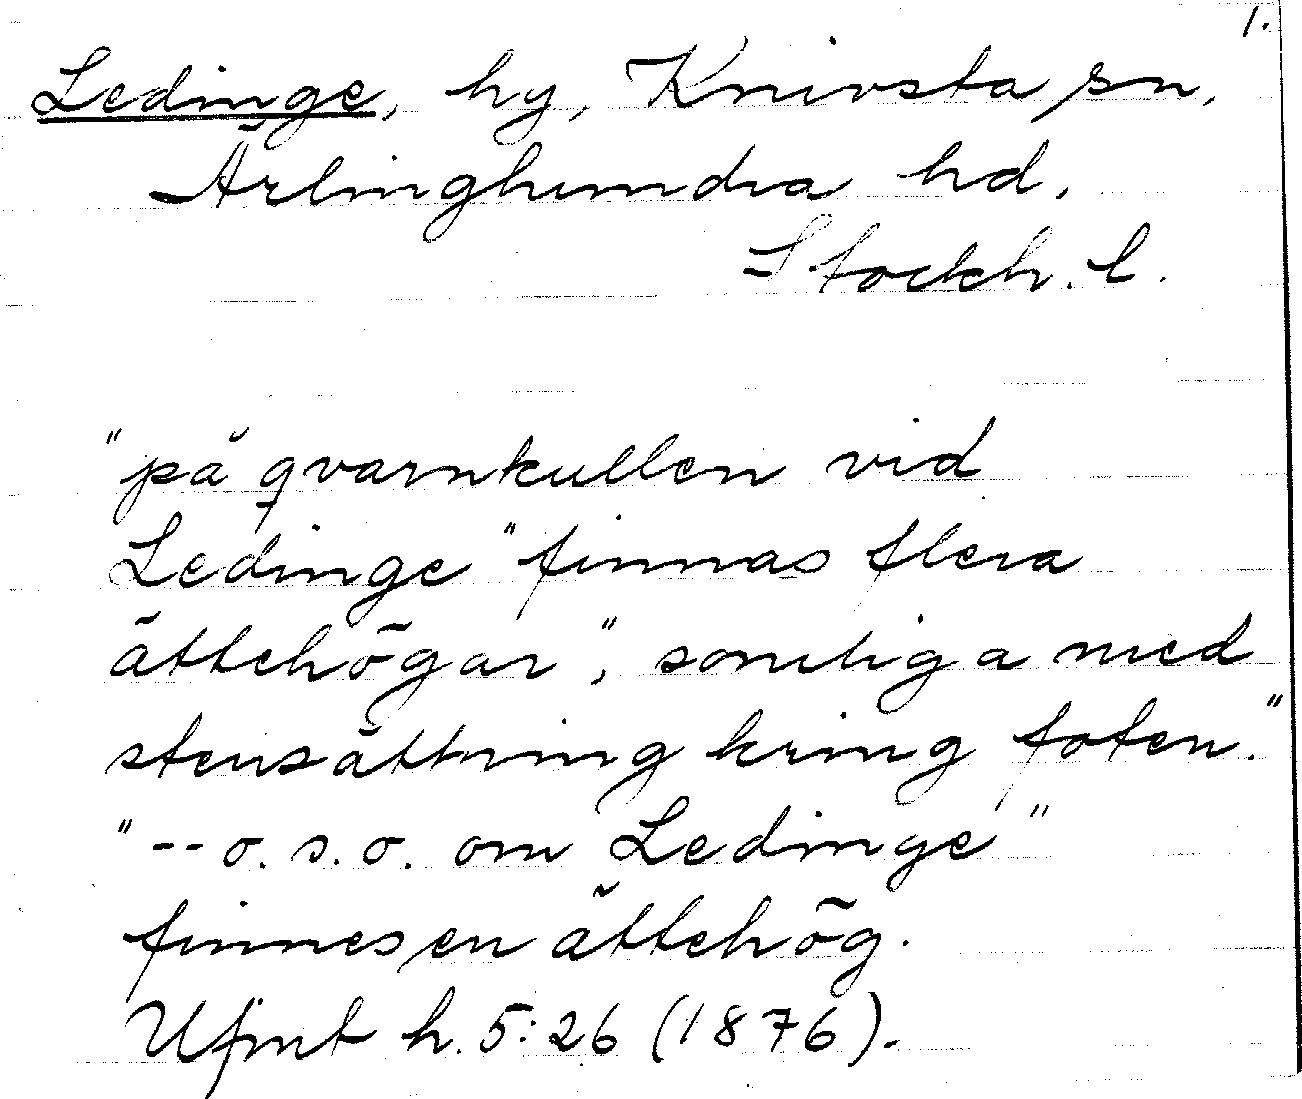 1.
Ledinge, by, Knivsta sn,
Ärlinghundra hd,
Stockh. l.
"på qvarnkullen vid
Ledinge" finnas flera
ättehögar", somliga med
stensättning kring foten."
"-- o. s. o. om Ledinge"
finnes en ättehög.
Ufmt h. 5:26 (1876).